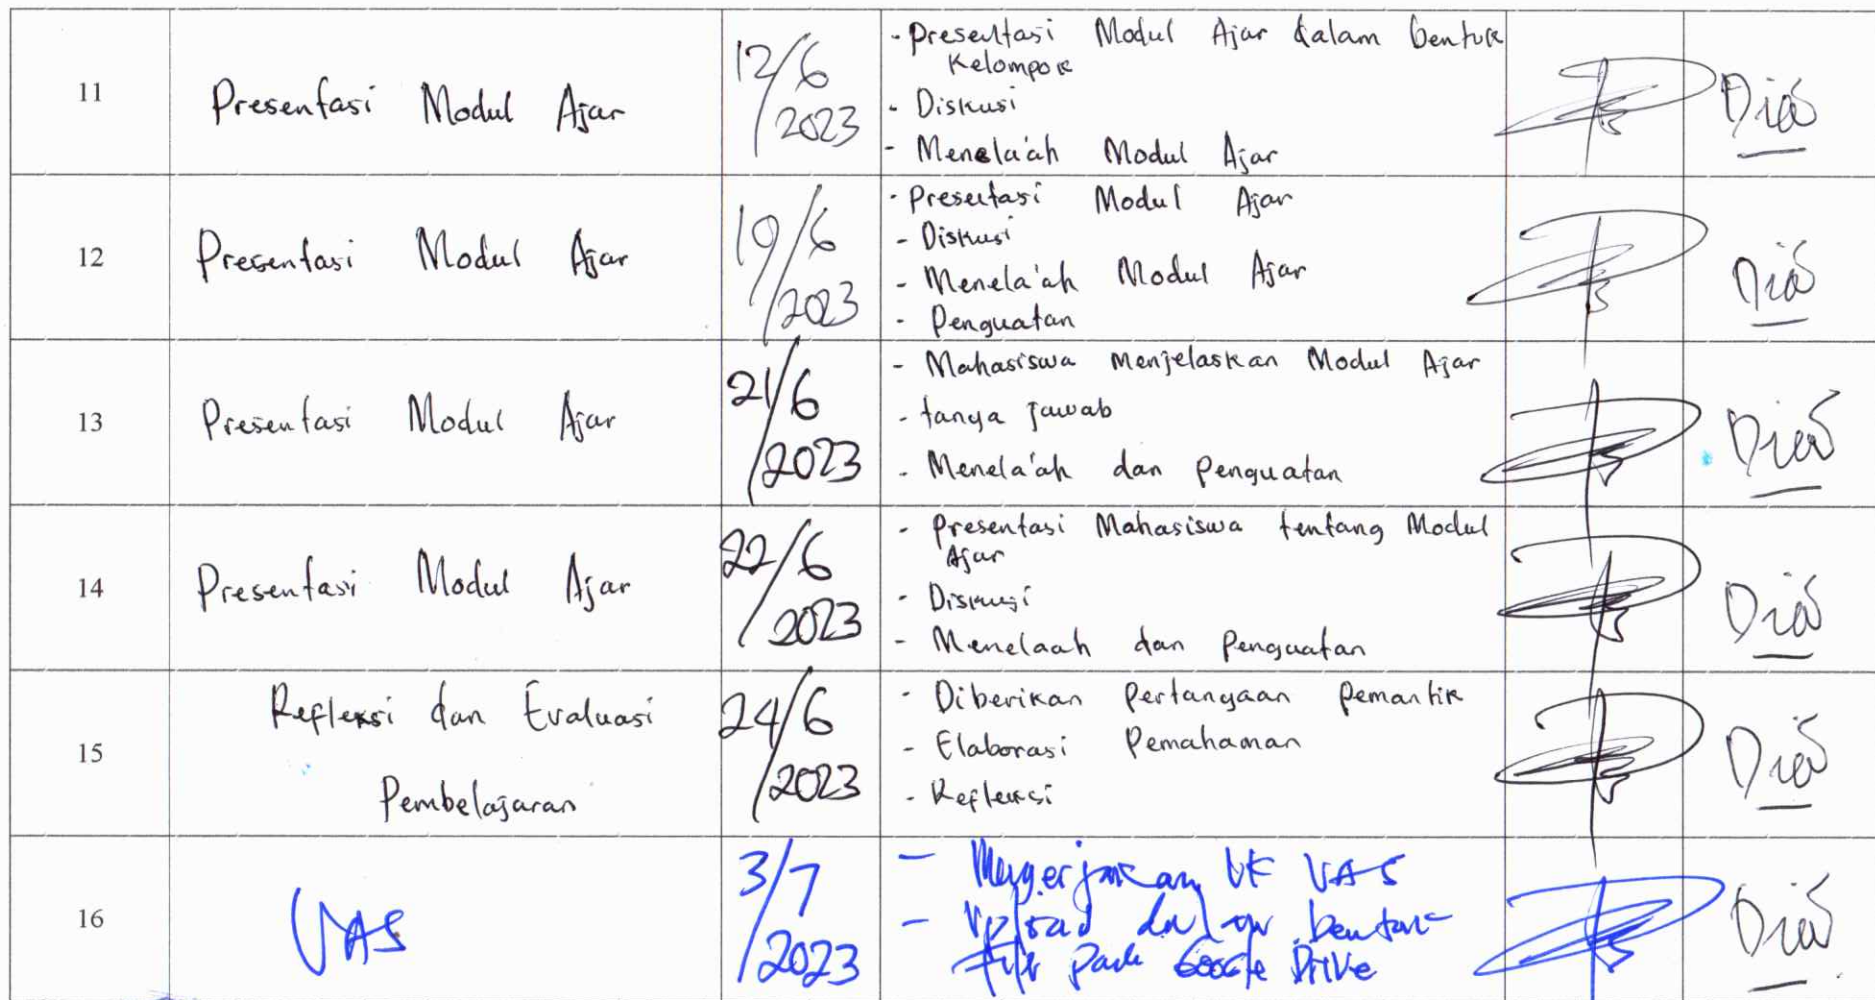 11
Presentasi Modul Ajar
12/6
/2023
- Presentasi Modul Ajar dalam bentuk
Kelompok
- Diskusi
- Menela'ah Modul Ajar
Dias
12
Presentasi Modul Ajar
19/6
/2023
- Presentasi Modul Ajar
- Diskusi
- Menela'ah Modul Ajar
- Penguatan
Dias
13
Presentasi Modul Ajar
21/6
/2023
- Mahasiswa Menjelaskan Modul Ajar
- tanya jawab
- Menela'ah dan penguatan
Dias
14
Presentasi Modul Ajar
22/6
/2023
- Presentasi Mahasiswa tentang Modul
Ajar
- Diskusi
- Menelaah dan penguatan
Dias
15
Refleksi dan Evaluasi
Pembelajaran
24/6
/2023
- Diberikan Pertanyaan pemantik
- Elaborasi Pemahaman
- Refleksi
Dias
16
UAS
3/7
/2023
- Mengerjakan UAS
- Upload dalam bentuk
file pada Google Drive
Dias